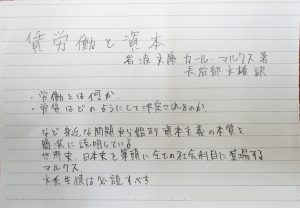 賃労働と資本
岩波文庫 カール・マルクス 著
長谷部文雄 訳
・労働とは何か
・労賃はどのようにして決定されるのか
など身近な問題から始め資本主義の本質を
簡潔に説明している
世界史、日本史を筆頭に全ての社会科目に登場する
マルクス
文系生徒は必読すべき